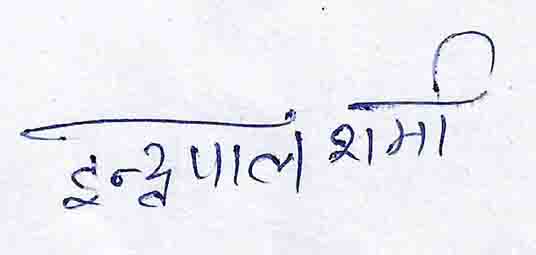 इन्द्रपाल शर्मा